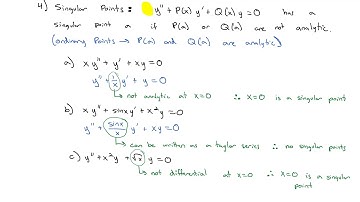 4) Singular Points: y'' + P(x) y' + Q(x) y = 0 has a
singular point a if P(a) or Q(a) are not analytic.
(ordinary Points → P(a) and Q(a) are analytic)
a) x y'' + y' + xy = 0
y'' + 1/x y' + y = 0
→ not analytic at x=0 ∴ x=0 is a singular point
b) x y'' + sinx y' + x²y = 0
y'' + sinx/x y' + xy = 0
→ can be written as a taylor series ∴ no singular points
c) y'' + x²y + √x y = 0
→ not differential at x=0 ∴ x=0 is a singular
point